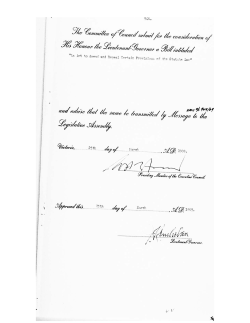 The Committee of Council submit for the consideration of
His Honour the Lieutenant-Governor a Bill intituled
"An Act to Amend and Repeal Certain Provisions of the Statute Law"
and advise that the same be transmitted by Message to the
Legislative Assembly.
Victoria, day of March A.D.
Presiding Member of the Executive Council.
Approved this day of March A.D.
Lieutenant-Governor.